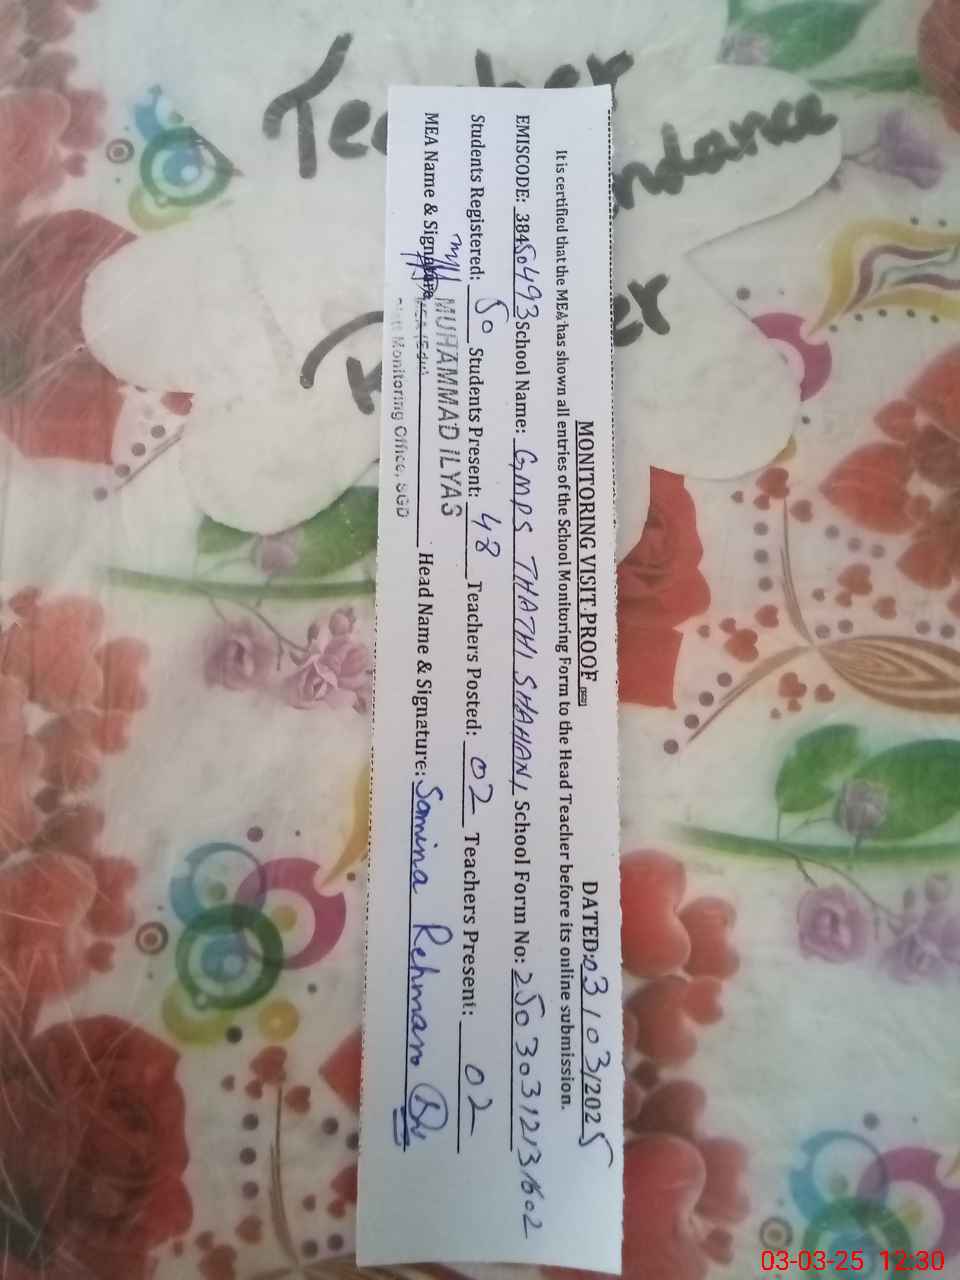 MONITORING VISIT PROOF DATED: 03/03/2025
It is certified that the MEA has shown all entries of the School Monitoring Form to the Head Teacher before its online submission.
EMISCODE: 38450493 School Name: GMPS THATHI SHAHANI School Form No: 25030312131602
Students Registered: 50 Students Present: 48 Teachers Posted: 02 Teachers Present: 02
MUHAMMAD ILYAS
MEA Name & Signature Head Name & Signature: Samina Rehman
Monitoring Office, SGD
03-03-25 12:30